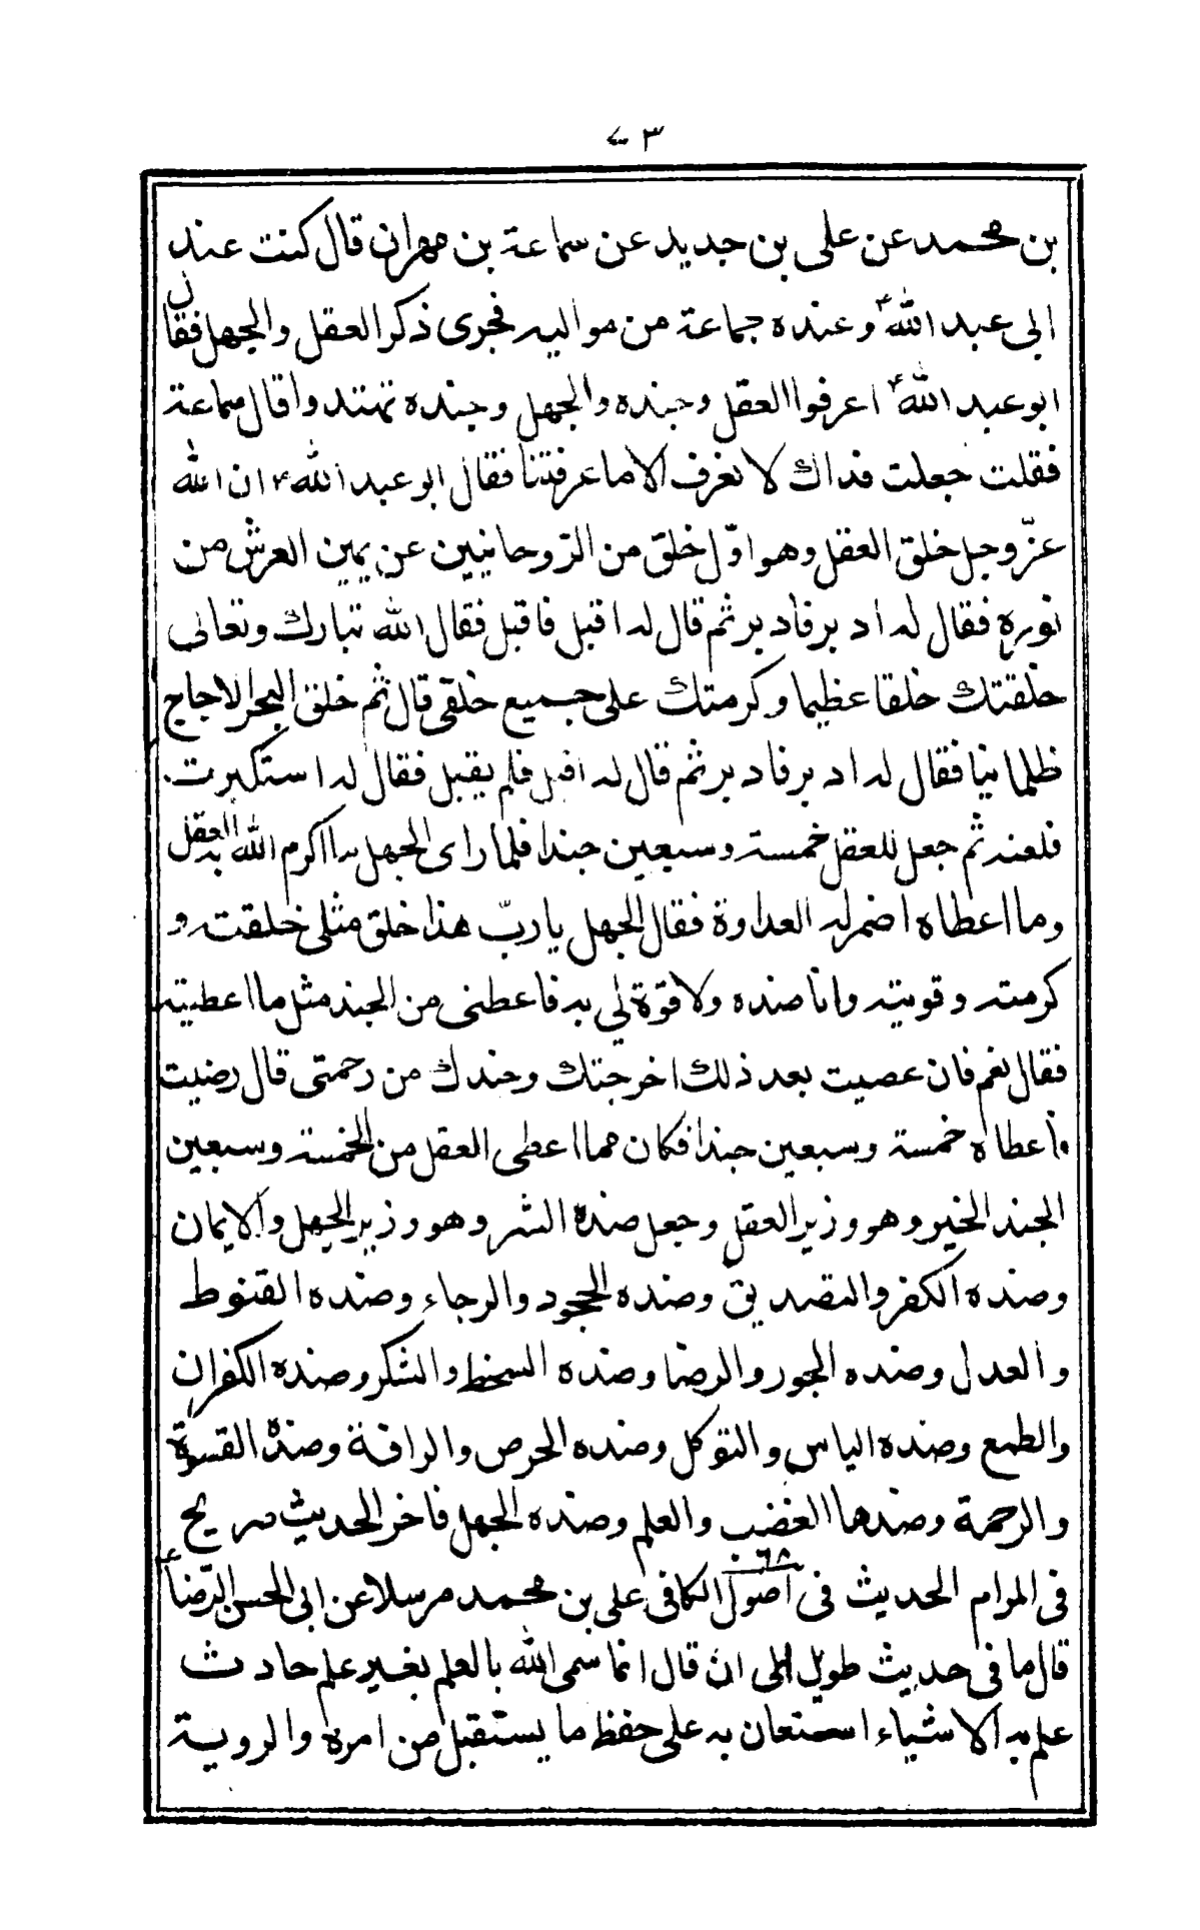 ٧٣
بن محمد عن علی بن جدید عن سماعة بن مهران قال کنت عند
ابی عبد الله ع و عنده جماعة من موالیه فجری ذکر العقل و الجهل فقال
ابو عبد الله ع اعرفوا العقل و جنده و الجهل و جنده تهتدوا قال سماعة
فقلت جعلت فداك لا نعرف الا ما عرفتنا فقال ابو عبد الله ع ان الله
عزّ و جل خلق العقل و هو اوّل خلق من الرّوحانیین عن یمین العرش من
نوره فقال له ادبر فادبر ثم قال له اقبل فاقبل فقال الله تبارك و تعالی
خلقتك خلقا عظیما و کرمتك علی جمیع خلقی قال ثم خلق البحر الاجاج
ظلمانیا فقال له ادبر فادبر ثم قال له اقبل فلم یقبل فقال له استکبرت
فلعنه ثم جعل للعقل خمسة و سبعین جندا فلما رای الجهل ما اکرم الله به العقل
و ما اعطاه اضمر له العداوة فقال الجهل یا ربّ هذا خلق مثلی خلقته و
کرمته و قویته و انا ضده و لا قوّة لی به فاعطنی من الجند مثل ما اعطیته
فقال نعم فان عصیت بعد ذلك اخرجتك و جندك من رحمتی قال رضیت
فاعطاه خمسة و سبعین جندا فکان مما اعطی العقل من الخمسة و سبعین
الجند الخیر و هو وزیر العقل و جعل ضده الشر و هو وزیر الجهل و الایمان
و ضده الکفر و التصدیق و ضده الجحود و الرجاء و ضده القنوط
و العدل و ضده الجور و الرضا و ضده السخط و الشکر و ضده الکفران
و الطمع و ضده الیاس و التوکل و ضده الحرص و الرافة و ضده القسوة
و الرحمة و ضدها الغضب و العلم و ضده الجهل فاخر الحدیث صریح
فی المرام الحدیث ٦٨ فی اصول الکافی علی بن محمد مرسلا عن ابی الحسن الرّضا ع
قال ما فی حدیث طویل الی ان قال انما سمی الله بالعلم بغیر علم حادث
علم به الاشیاء استعان به علی حفظ ما یستقبل من امره و الرویة